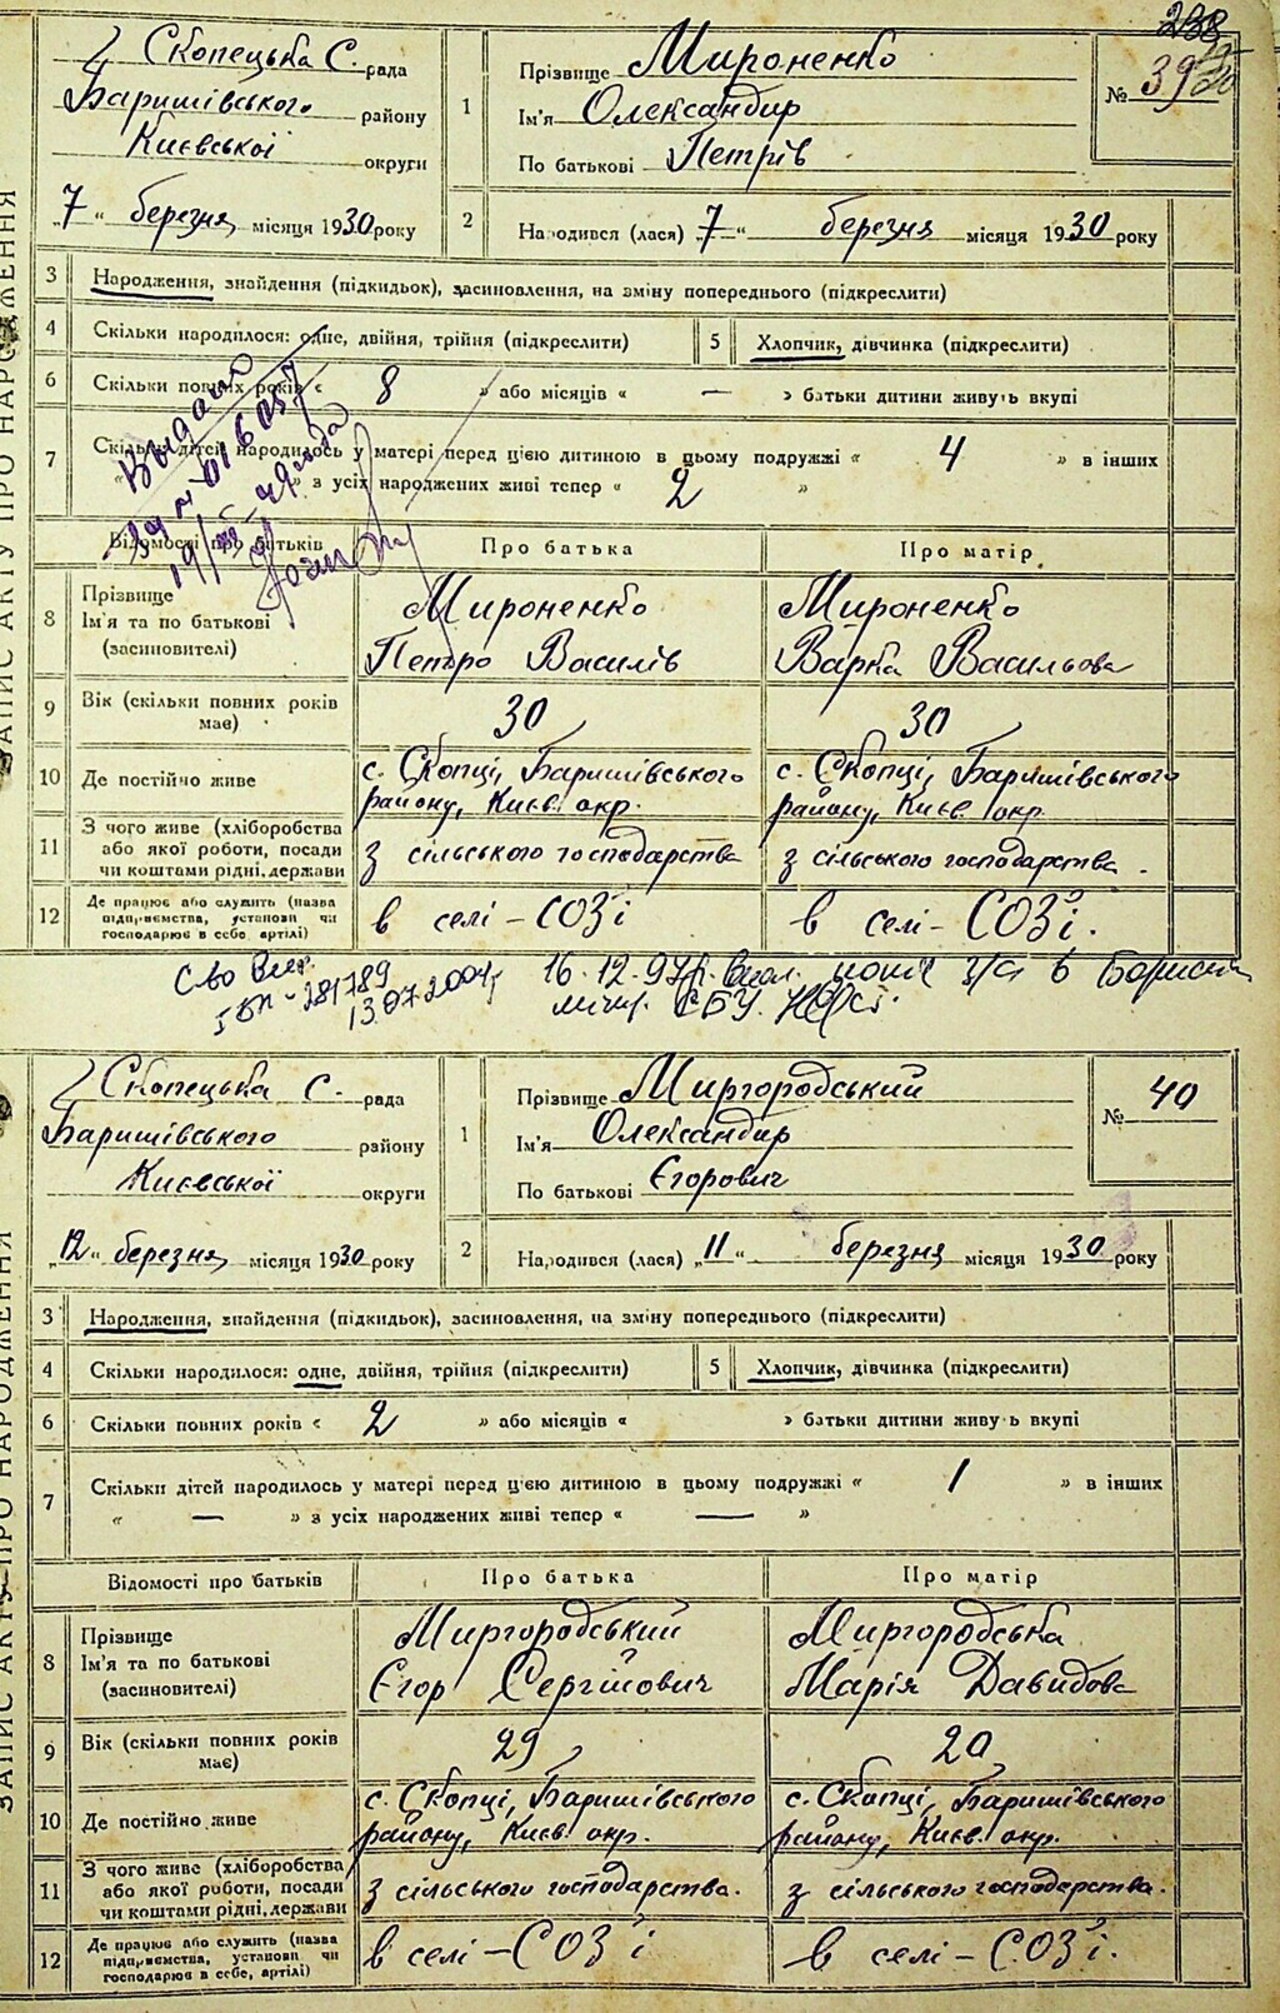 238
ЗАПИС АКТУ ПРО НАРОДЖЕННЯ
Скопецька С. рада
Баришівського району
Київської округи
„7“ березня місяця 1930 року
1
Прізвище Мироненко
Ім'я Олександир
По батькові Петрів
№ 39
2
Народився (лася) „7“ березня місяця 1930 року
3 Народження, знайдення (підкидьок), засиновлення, на зміну попереднього (підкреслити)
4 Скільки народилося: одне, двійня, трійня (підкреслити)
5 Хлопчик, дівчинка (підкреслити)
6 Скільки повних років « 8 » або місяців « — » батьки дитини живуть вкупі
7 Скільки дітей народилось у матері перед цією дитиною в цьому подружжі « 4 » в інших
« » з усіх народжених живі тепер « 2 »
Выдано
Відомості про батьків Про батька Про матір
8 Прізвище
Ім'я та по батькові
(засиновителі)
Мироненко
Петро Василів
Мироненко
Варка Васильова
9 Вік (скільки повних років має) 30 30
10 Де постійно живе
с. Скопці, Баришівського
району, Києв. окр.
с. Скопці, Баришівського
району, Києв. окр.
11 З чого живе (хліборобства
або якої роботи, посади
чи коштами рідні, держави
з сільського господарства
з сільського господарства.
12 Де працює або служить (назва
підприємства, установи чи
господарює в себе артілі)
в селі – СОЗ'і
в селі – СОЗ'і.
281789
13.07.2004
16.12.97р.
ЗАПИС АКТУ ПРО НАРОДЖЕННЯ
Скопецька С. рада
Баришівського району
Київської округи
„12“ березня місяця 1930 року
1
Прізвище Миргородський
Ім'я Олександир
По батькові Єгорович
№ 40
2
Народився (лася) „11“ березня місяця 1930 року
3 Народження, знайдення (підкидьок), засиновлення, на зміну попереднього (підкреслити)
4 Скільки народилося: одне, двійня, трійня (підкреслити)
5 Хлопчик, дівчинка (підкреслити)
6 Скільки повних років « 2 » або місяців « » батьки дитини живуть вкупі
7 Скільки дітей народилось у матері перед цією дитиною в цьому подружжі « 1 » в інших
« — » з усіх народжених живі тепер « — »
Відомості про батьків Про батька Про матір
8 Прізвище
Ім'я та по батькові
(засиновителі)
Миргородський
Єгор Сергійович
Миргородська
Марія Давидова
9 Вік (скільки повних років має) 29 20
10 Де постійно живе
с. Скопці, Баришівського
району, Києв. окр.
с. Скопці, Баришівського
району, Києв. окр.
11 З чого живе (хліборобства
або якої роботи, посади
чи коштами рідні, держави
з сільського господарства.
з сільського господарства.
12 Де працює або служить (назва
підприємства, установи чи
господарює в себе, артілі)
в селі – СОЗ'і
в селі – СОЗ'і.